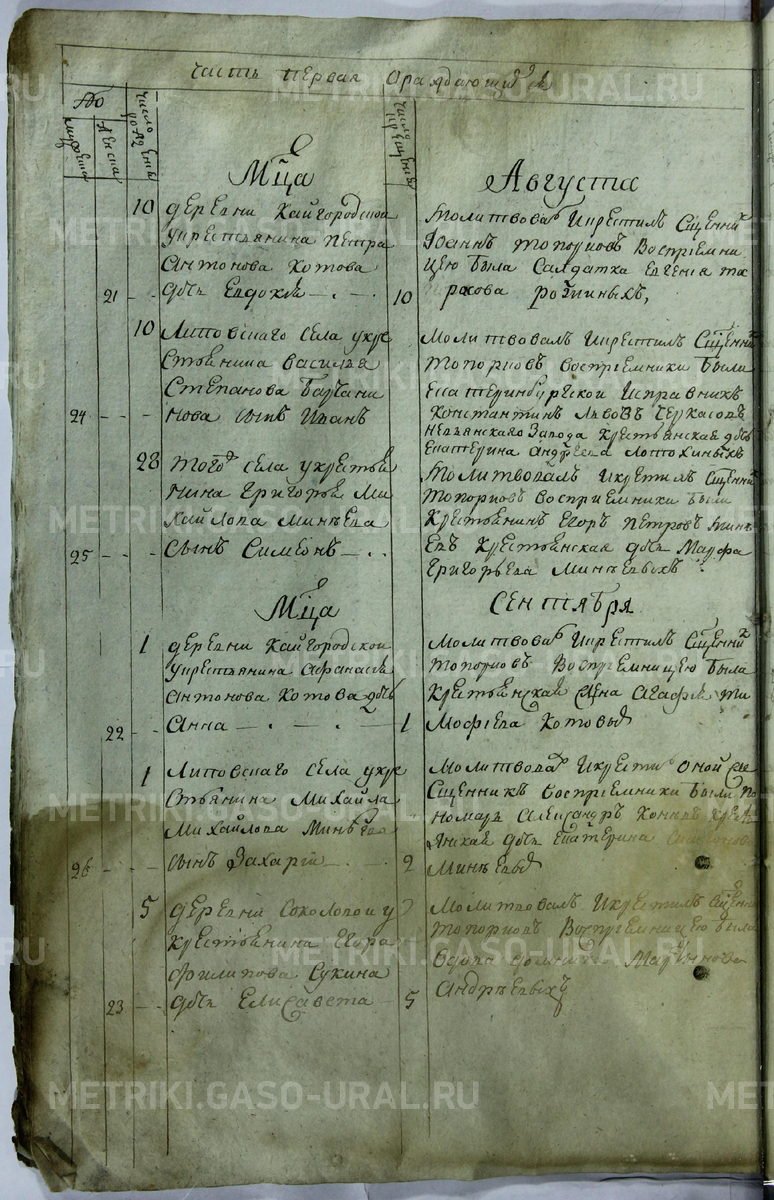 Часть первая ораждающихся
Но
мужеска
женска
число рожденiя
число крещенiя
Мца
Августа
10
деревни Кайгородской
у крестьянина Петра
Антонова Котова
21
дочь Евдокiя
10
молитвовалъ и крестилъ Сщенникъ
Iоаннъ Топорковъ Воспрiемни
цею была Салдатка Евгенiя
10
Липовскаго села у кре
стьянина Василья
Степанова
24
нова сынъ Иванъ
молитвовалъ и крестилъ Сщенникъ
Топорковъ воспрiемники были
Екатеринбургской Исправникъ
Константинъ Львовъ Черкасовъ
Невьянскаго Завода крестьянская дочь
Екатерина Андреева
28
того села у крестья
нина Григорья Ми
хайлова Минѣева
25
сынъ Симеонъ
молитвовалъ и крестилъ Сщенникъ
Топорковъ воспрiемники были
крестьянинъ Егоръ Петровъ Мин
евъ крестьянская дочь Марфа
Григорьева Минѣевыхъ
Мца
Сентября
1
деревни Кайгородской
у крестьянина Афанасья
Антонова Котова дочь
22
Анна
1
молитвовалъ и крестилъ Сщенникъ
Топорковъ Воспрiемницею была
крестьянская жена Агафья Ти
мофiева Котовы
1
Липовскаго села у кре
стьянина Михайла
Михайлова Минѣева
26
сынъ Захарiй
2
молитвовалъ и крестилъ оной же
Сщенникъ воспрiемники были по
номарь Александръ кре
янская дочь Екатерина
Минѣевы
5
деревни Соколовой у
крестьянина Егора
Филипова Сукина
23
дочь Елисавета
5
молитвовалъ и крестилъ Сщенникъ
Топорковъ Воспрiемницею была
вдова Мартинова
Андрѣевыхъ
METRIKI.GASO-URAL.RU